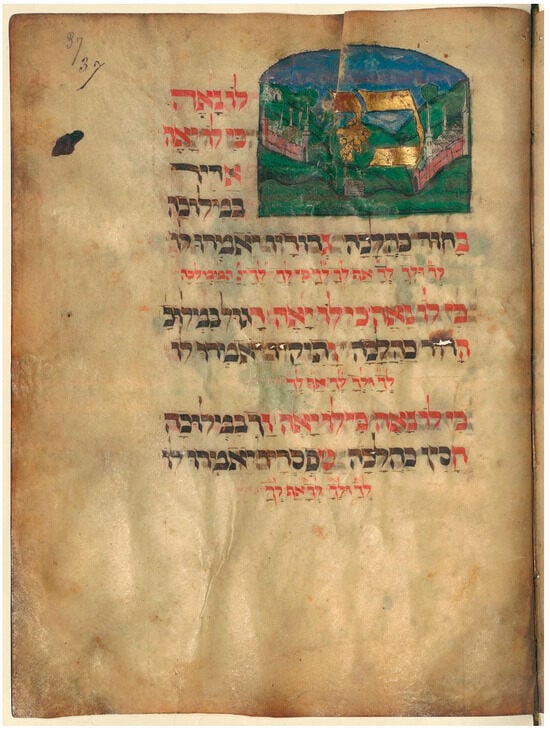 37
37
כי
לו נאה
כי לו יאה
אדיר
במלוכה
בחור כהלכה גדודיו יאמרו לו
לך ולך לך אף לך לך כי לך לך
כי לו נאה כי לו יאה דגול במלוכ
הדור כהלכה ותיקיו יאמרו לו
לך ולך לך אף לך
כי לו נאה כי לו יאה זך במלוכה
חסין כהלכה טפסריו יאמרו לו
לך ולך לך אף לך